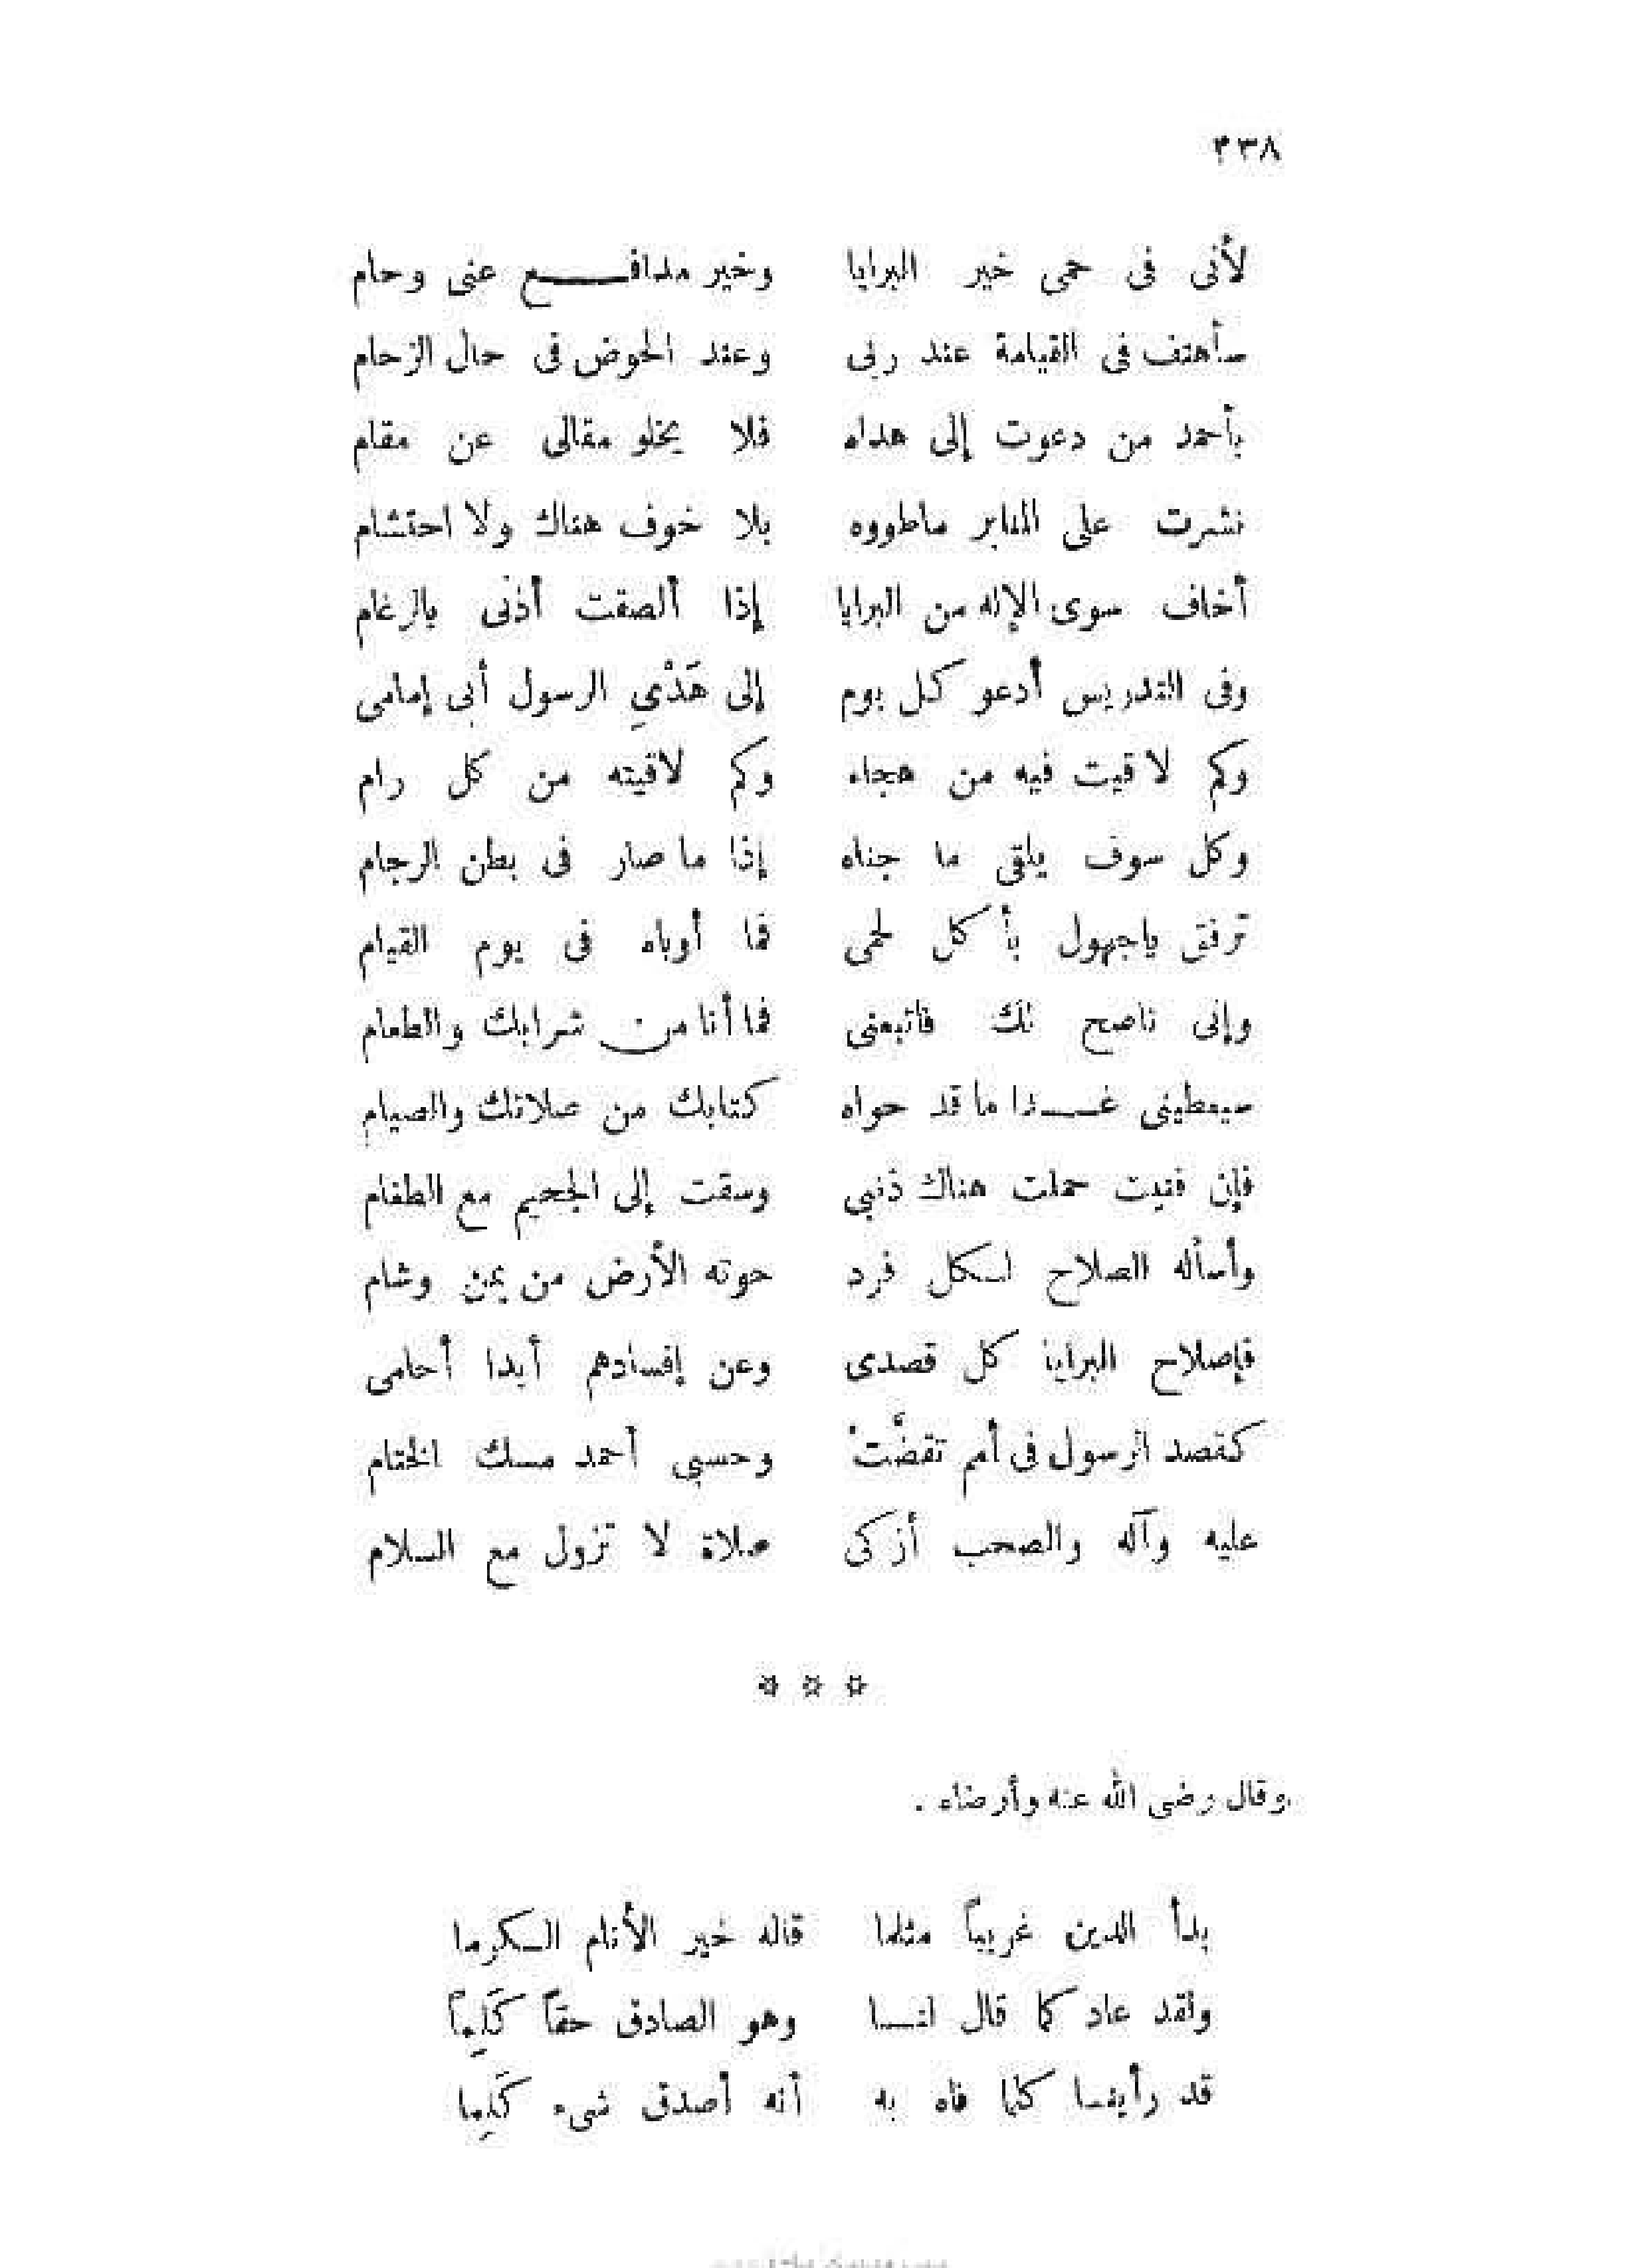 ٤٣٨
لأنى فى حمى خير البرايا وخير مدافـــع عنى وحام
سأهتف فى القيامة عند ربى وعند الحوض فى حال الزحام
بأحمد من دعوت إلى هداه فلا يخلو مقالى عن مقام
نشرت على المنابر ماطووه بلا خوف هناك ولا احتشام
أخاف سوى الإله من البرايا إذا ألصقت أذنى بالرغام
وفى التدريس أدعو كل يوم إلى هَدْيِ الرسول أبى إمامى
وكم لاقيت فيه من هجاء وكم لاقيته من كل رام
وكل سوف يلقى ما جناه إذا ما صار فى بطن الرجام
ترفق ياجهول بأكل لحمى فما أوباه فى يوم القيام
وإنى ناصح لك فاتبعنى فما أنا من شرابك والطعام
سيعطينى غـــدا ما قد حواه كتابك من صلاتك والصيام
فإن فنيت حملت هناك ذنبى وسقت إلى الجحيم مع الطغام
وأسأله الصلاح لكل فرد حوته الأرض من يمن وشام
فإصلاح البرايا كل قصدى وعن إفسادهم أبدا أحامى
كقصد الرسول فى أمم تقضَّتْ وحسبى أحمد مسك الختام
عليه وآله والصحب أزكى صلاة لا تزول مع السلام
وقال رضى الله عنه وأرضاه .
بدأ الدين غريباً مثلما قاله خير الأنام الكرما
ولقد عاد كما قال لنـا وهو الصادق حقاً كَلِماً
قد رأينـا كلما فاه به أنه أصدق شىء كَلِما